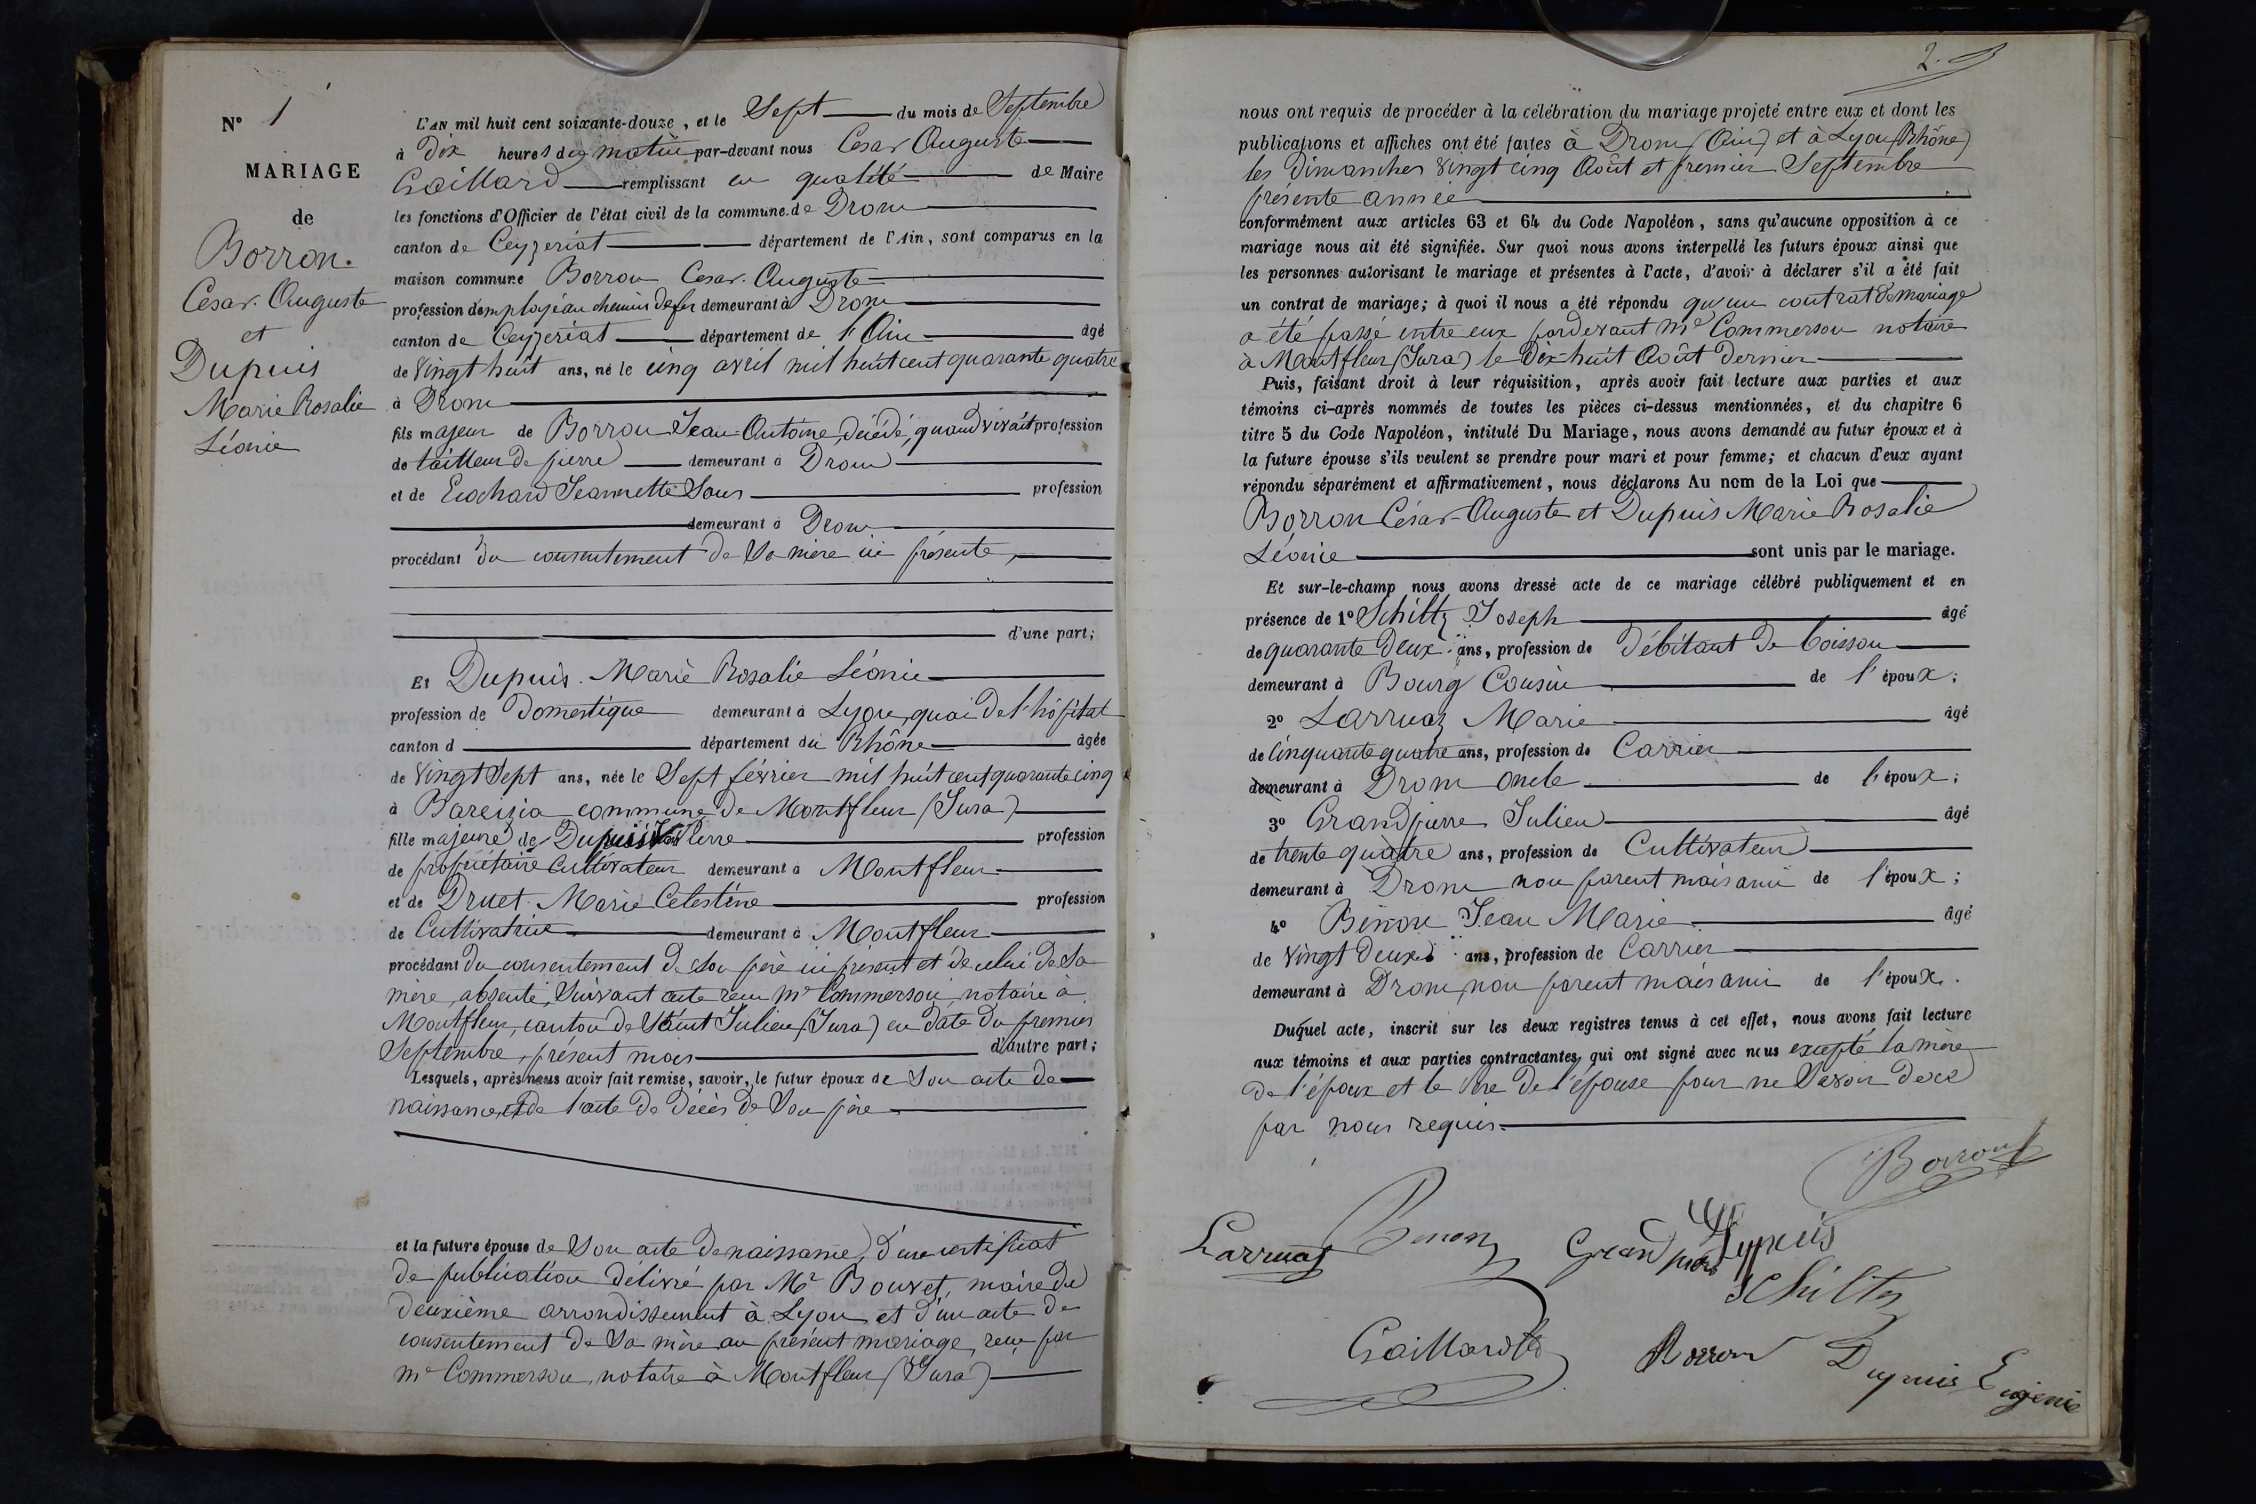 N° 1
MARIAGE
de
Borron.
César. Auguste
et
Dupuis
Marie Rosalie
Léonie
L'AN mil huit cent soixante-douze, et le Sept du mois de Septembre
à dix heures du matin par-devant nous César Auguste
Gaillard remplissant en qualité de Maire
les fonctions d'Officier de l'état civil de la commune de Drom
canton de Ceyzeriat département de l'Ain, sont comparus en la
maison commune Borron César. Auguste
profession d'employé au chemin de fer demeurant à Drom
canton de Ceyzeriat département de l'Ain âgé
de Vingt huit ans, né le cinq avril mil huit cent quarante quatre
à Drom
fils majeur de Borron Jean Antoine, décédé, quand vivait profession
de tailleur de pierre demeurant à Drom
et de Jeannette Sous profession
demeurant à Drom
procédant du consentement de Sa mère ici présente,
d'une part;
Et Dupuis. Marie Rosalie Léonie
profession de Domestique demeurant à Lyon, quai de l'hôpital
canton d département du Rhône âgée
de Vingt Sept ans, née le Sept février mil huit cent quarante cinq
à Bareizia commune de Montfleur (Jura)
fille majeure de Dupuis Pierre profession
de propriétaire Cultivateur demeurant à Montfleur
et de Druet Marie Célestine profession
de Cultivatrice demeurant à Montfleur
procédant du consentement de Son père ici présent et de celui de Sa
mère, absente, Suivant acte reçu Me Commerson, notaire à
Montfleur, canton de Saint Julien (Jura) en date du premier
Septembre, présent mois d'autre part;
Lesquels, après nous avoir fait remise, savoir, le futur époux de Son acte de
naissance et de l'acte de décès de Son père
et la future épouse de Son acte de naissance, d'un certificat
de publication délivré par Mr Bouvet, maire du
deuxième arrondissement à Lyon et d'un acte de
consentement de Sa mère au présent mariage, reçu par
Me Commerson, notaire à Montfleur (Jura)
2.
nous ont requis de procéder à la célébration du mariage projeté entre eux et dont les
publications et affiches ont été faites à Drom (Ain) et à Lyon (Rhône)
les Dimanches Vingt cinq Août et premier Septembre
présente année
conformément aux articles 63 et 64 du Code Napoléon, sans qu'aucune opposition à ce
mariage nous ait été signifiée. Sur quoi nous avons interpellé les futurs époux ainsi que
les personnes autorisant le mariage et présentes à l'acte, d'avoir à déclarer s'il a été fait
un contrat de mariage; à quoi il nous a été répondu qu'un contrat de mariage
a été passé entre eux pardevant Me Commerson notaire
à Montfleur (Jura) le Dix-huit Août dernier
Puis, faisant droit à leur réquisition, après avoir fait lecture aux parties et aux
témoins ci-après nommés de toutes les pièces ci-dessus mentionnées, et du chapitre 6
titre 5 du Code Napoléon, intitulé Du Mariage, nous avons demandé au futur époux et à
la future épouse s'ils veulent se prendre pour mari et pour femme; et chacun d'eux ayant
répondu séparément et affirmativement, nous déclarons Au nom de la Loi que
Borron César-Auguste et Dupuis Marie Rosalie
Léonie sont unis par le mariage.
Et sur-le-champ nous avons dressé acte de ce mariage célébré publiquement et en
présence de 1° Schiltz Joseph âgé
de quarante deux ans, profession de Débitant de boisson
demeurant à Bourg Cousin de l'époux;
2° Larruaz Marie âgé
de Cinquante quatre ans, profession de Carrier
demeurant à Drom oncle de l'époux;
3° Grandpierre Julien âgé
de trente quatre ans, profession de Cultivateur
demeurant à Drom non parent mais ami de l'époux;
4° Jean Marie âgé
de Vingt deux ans, profession de Carrier
demeurant à Drom, non parent mais ami de l'époux.
Duquel acte, inscrit sur les deux registres tenus à cet effet, nous avons fait lecture
aux témoins et aux parties contractantes, qui ont signé avec nous excepté la mère
de l'époux et le Père de l'épouse pour ne Savoir de ce
par nous requis.
Borron
Larruaz
Grandpierre
Dupuis
Schiltz
Gaillard
Borron
Dupuis Eugénie